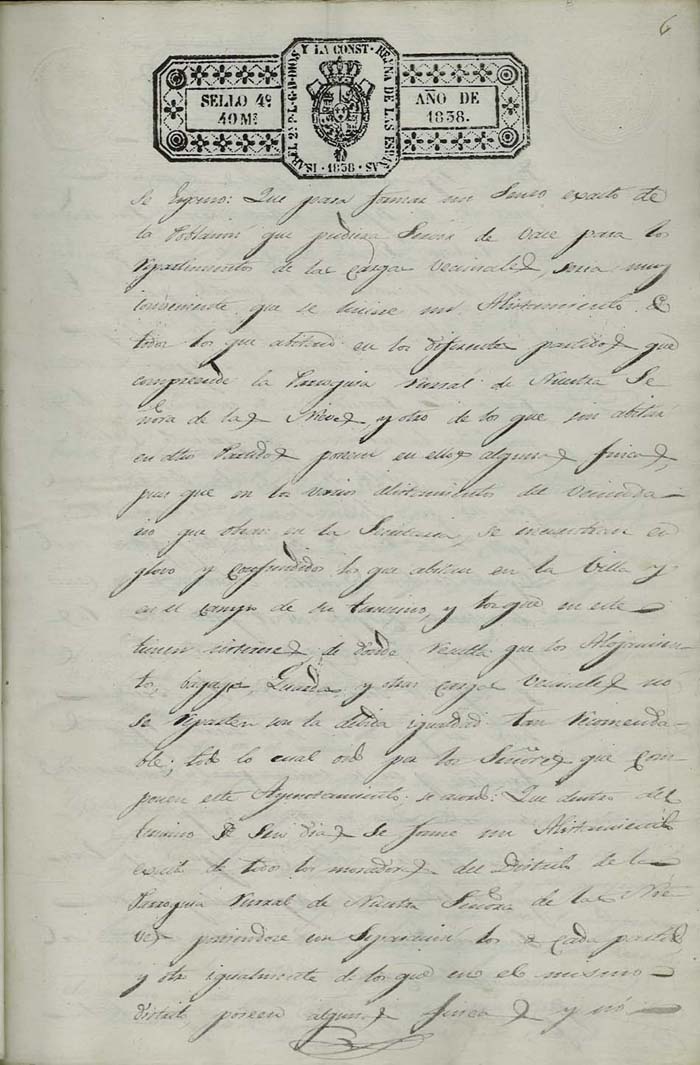 6
ISABEL 2ª P. L. G. D. DIOS Y LA CONST. REYNA DE LAS ESPAÑAS · 1838 ·
SELLO 4º
40 Mˢ
AÑO DE
1838.
se Espuso: Que para formar un exacto de
la que pudiera de vace para los
repartimientos de las cargas vecinales, seria muy
conveniente que se hiciese un Alistamiento de
todos los que abitan en los diferentes partidos que
comprende la Parroquia rural de Nuestra Se
ñora de las Nieves, y otro de los que sin abitar
en dhos Partidos poseen en ellos algunas fincas,
pues que en los varios alistamientos del vecinda
rio que obran en la Secretaria, se encuentran en
globo y confundidos los que abitan en la Villa y
en el campo de su termino, y los que en este
tienen de donde resulta que los Alojamien
tos, bagajes, Guardas, y otras cargas Vecinales no
se reparten con la debida igualdad tan recomenda
ble; todo lo cual oido por los Señores que com
ponen este Ayuntamiento se acordó: Que dentro del
termino de seis dias se forme un Alistamiento
exacto de todos los moradores del Distrito de la
Parroquia Rural de Nuestra Señora de las Nie
ves poniendose con separacion los de cada partido,
y otro igualmente de los que en el mismo
distrito poseen algunas fincas y no